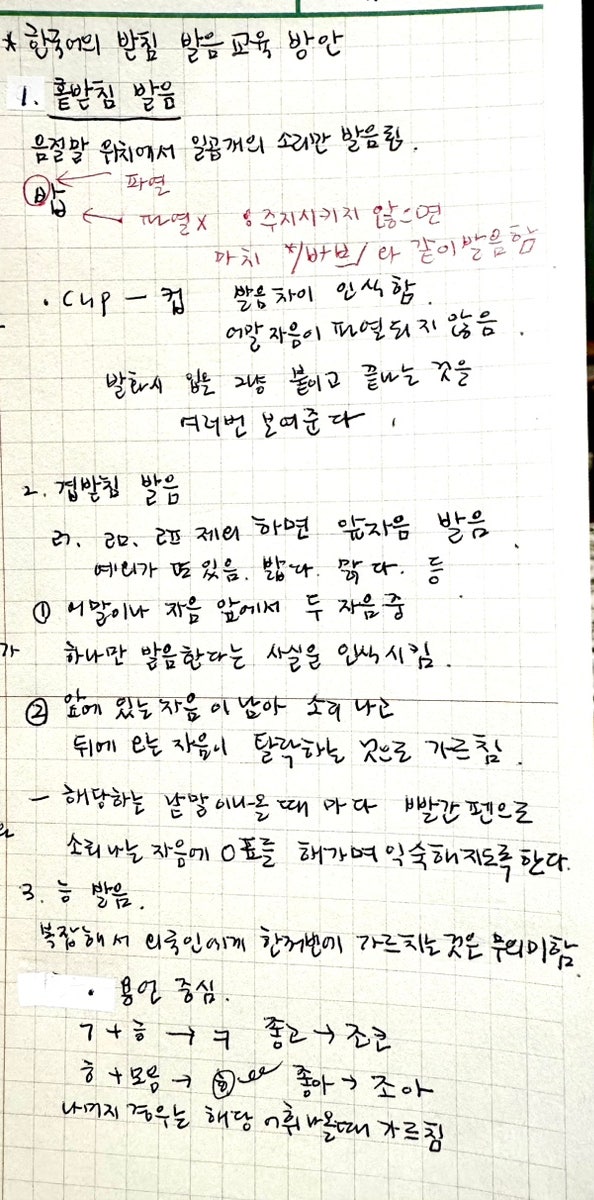 * 한국어의 받침 발음교육 방안
1. 홑받침 발음
음절말 위치에서 일곱개의 소리만 발음됨.
밥 ← 파열
← 파열x 주지시키지 않으면
마치 */바브/ 와 같이발음함
· cup — 컵 발음차이 인식함.
어말자음이 파열되지 않음.
발화시 입을 그냥 붙이고 끝나는 것을
여러번 보여준다.
2. 겹받침 발음
ㄺ. ㄻ. ㄿ 제외 하면 앞자음 발음
예외가 또 있음. 밟다. 맑다. 등
① 어말이나 자음 앞에서 두 자음중
하나만 발음한다는 사실을 인식시킴.
② 앞에 있는 자음이 남아 소리 나고
뒤에 오는 자음이 탈락하는 것으로 가르침.
— 해당하는 낱말이 나올 때 마다 빨간펜으로
소리나는 자음에 O표를 해가며 익숙해지도록 한다.
3. ㅎ 발음.
복잡해서 외국인에게 한꺼번에 가르치는 것은 무의미함.
· 용언 중심.
ㄱ + ㅎ → ㅋ 좋고 → 조코
ㅎ + 모음 → ㅎ 좋아 → 조아
나머지 경우는 해당 어휘나올때 가르침